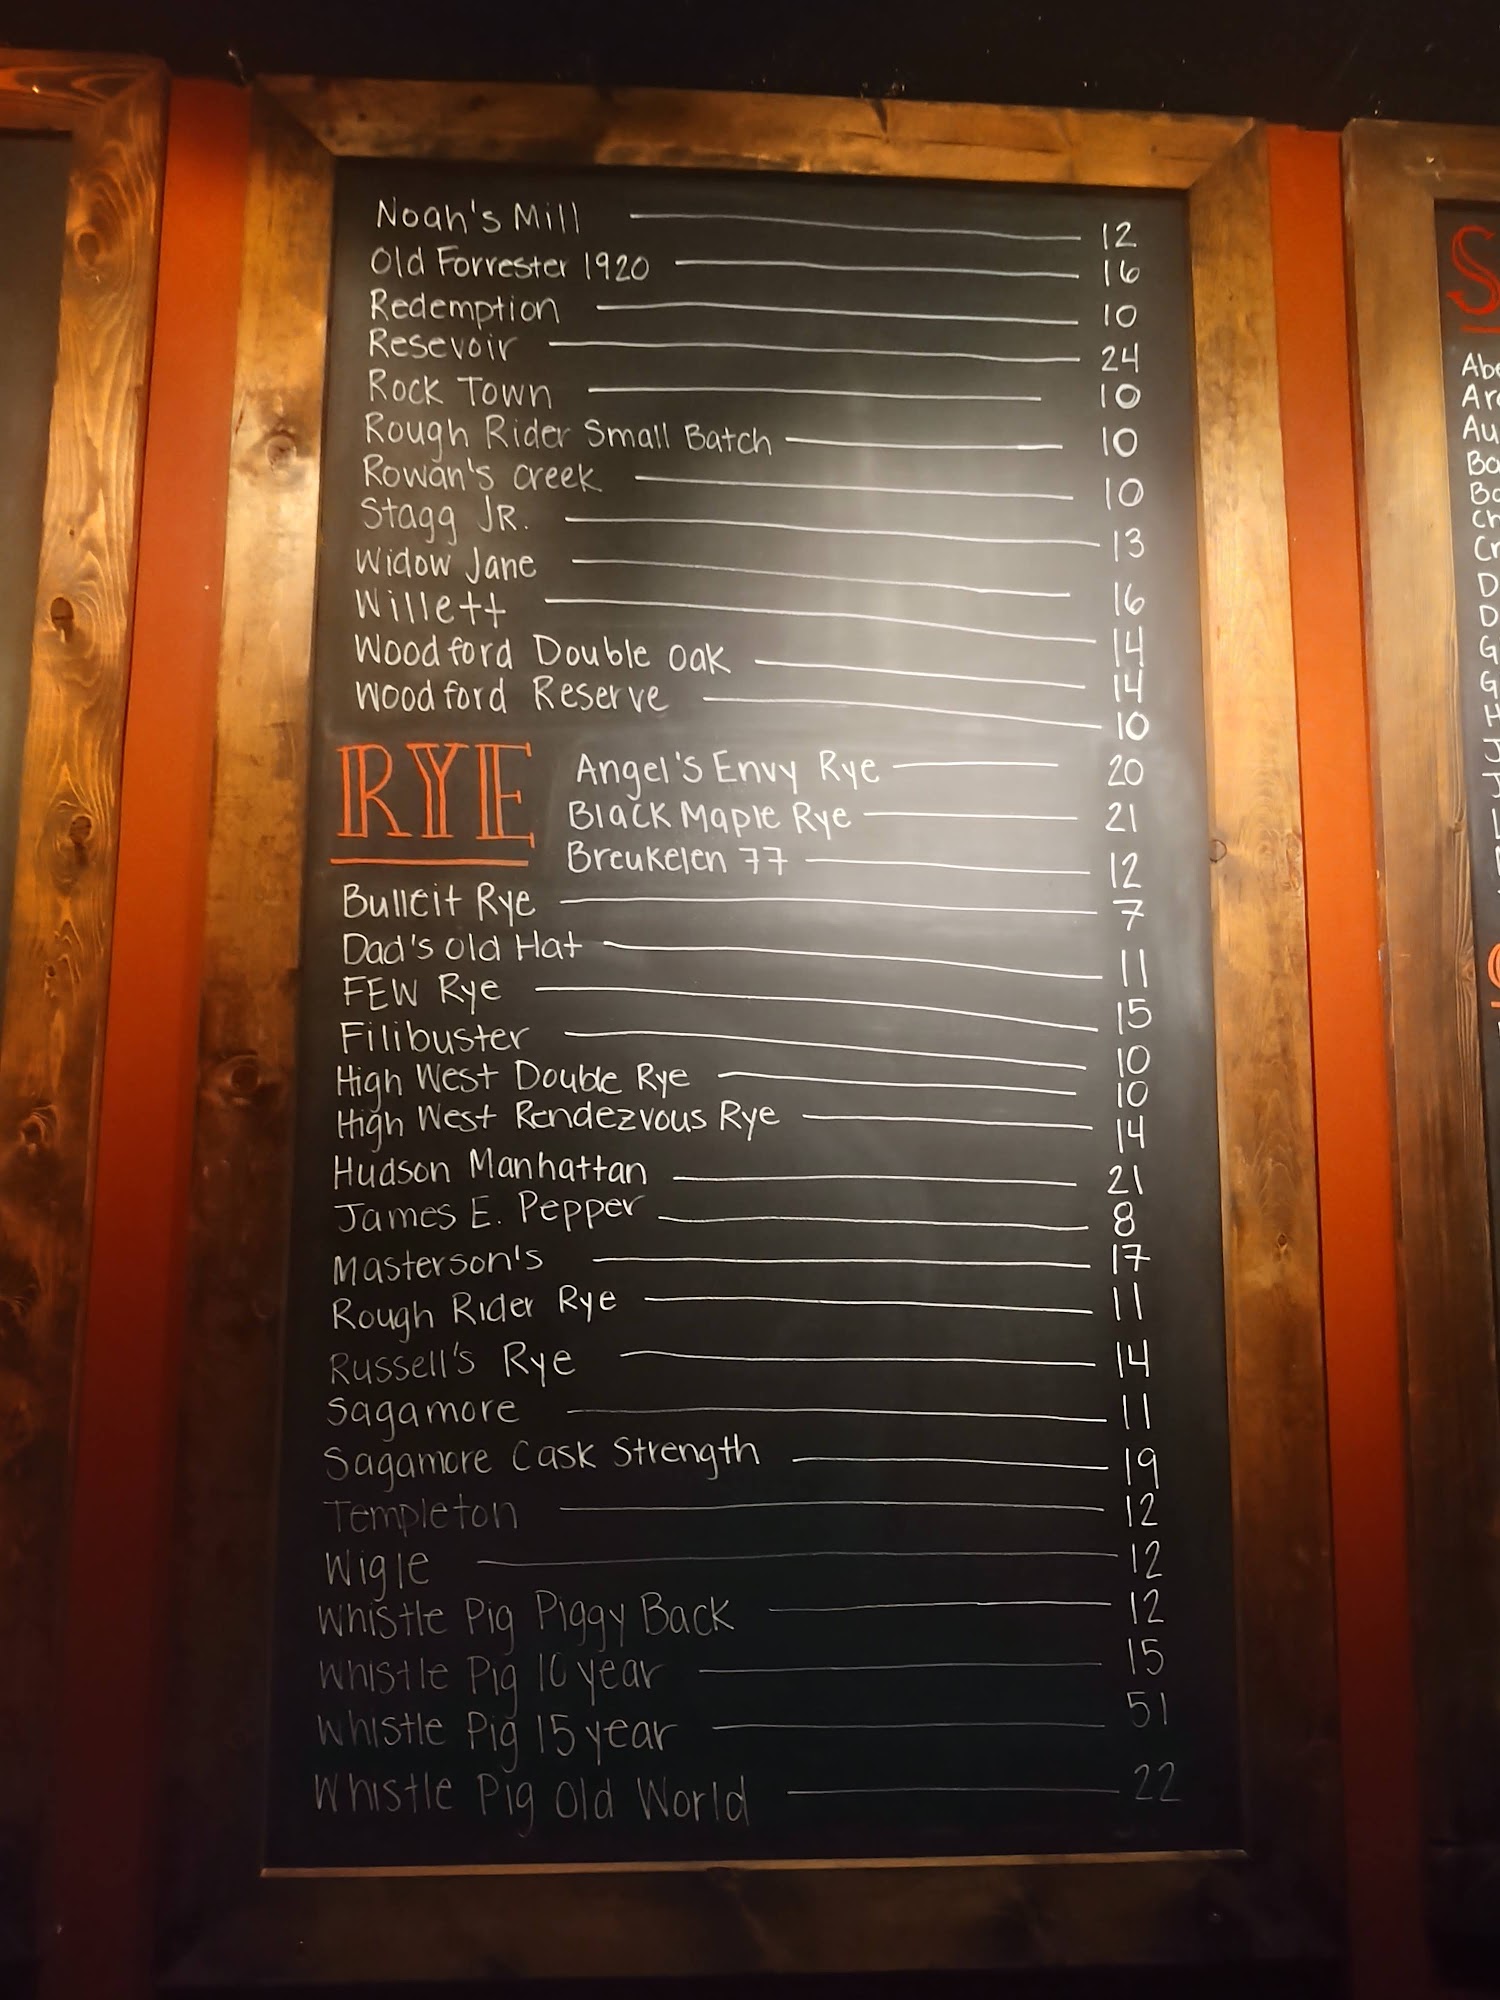 Noah's Mill 12
Old Forrester 1920 16
Redemption 10
Resevoir 24
Rock Town 10
Rough Rider Small Batch 10
Rowan's Creek 10
Stagg JR. 13
Widow Jane 16
Willett 14
Woodford Double Oak 14
Woodford Reserve 10
RYE
Angel's Envy Rye 20
Black Maple Rye 21
Breukelen 77 12
Bulleit Rye 7
Dad's Old Hat 11
FEW Rye 15
Filibuster 10
High West Double Rye 10
High West Rendezvous Rye 14
Hudson Manhattan 21
James E. Pepper 8
Masterson's 17
Rough Rider Rye 11
Russell's Rye 14
Sagamore 11
Sagamore Cask Strength 19
Templeton 12
Wigle 12
Whistle Pig Piggy Back 12
Whistle Pig 10 year 15
Whistle Pig 15 year 51
Whistle Pig Old World 22